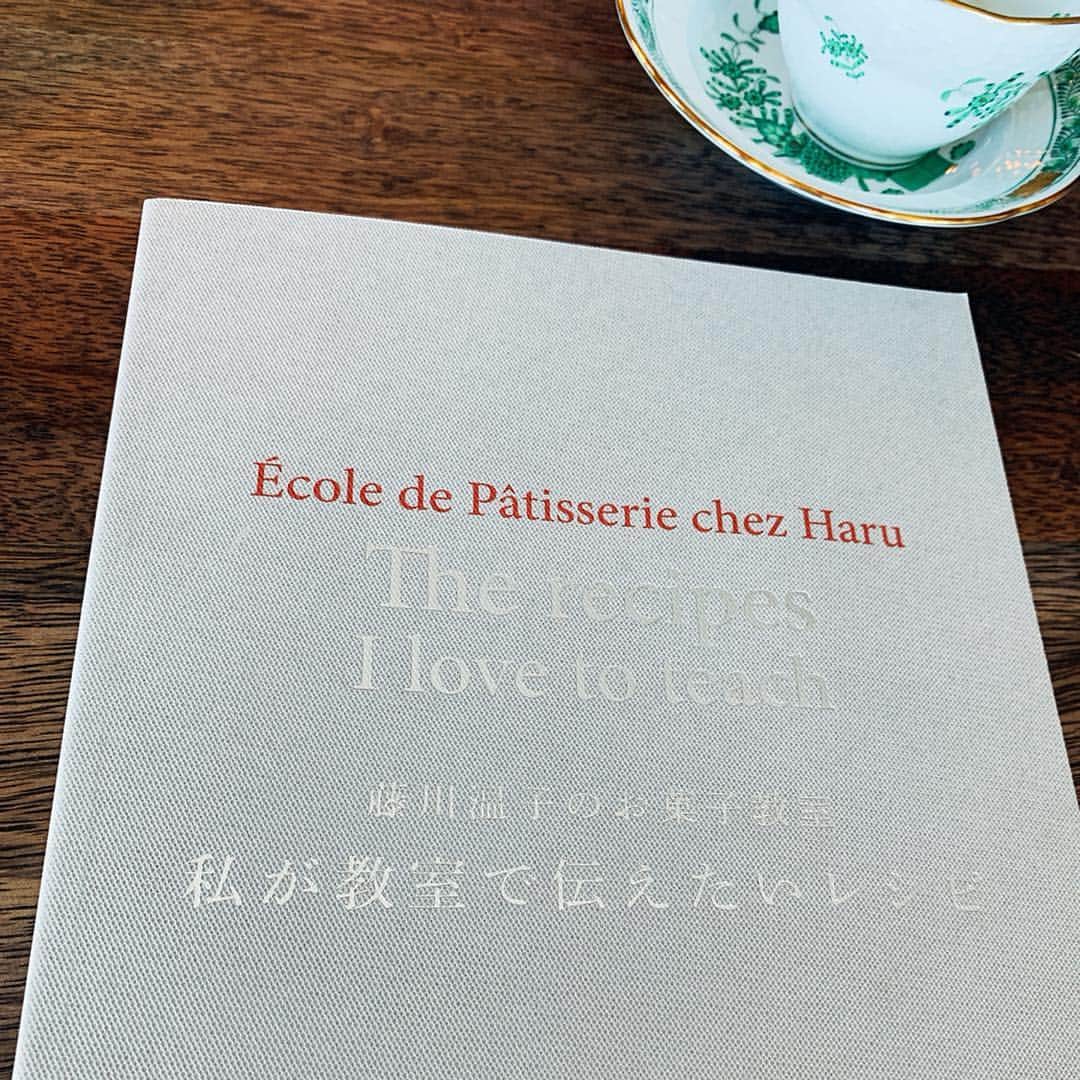 École de Pâtisserie chez Haru
The recipes
I love to teach
藤川温子のお菓子教室
私が教室で伝えたいレシピ